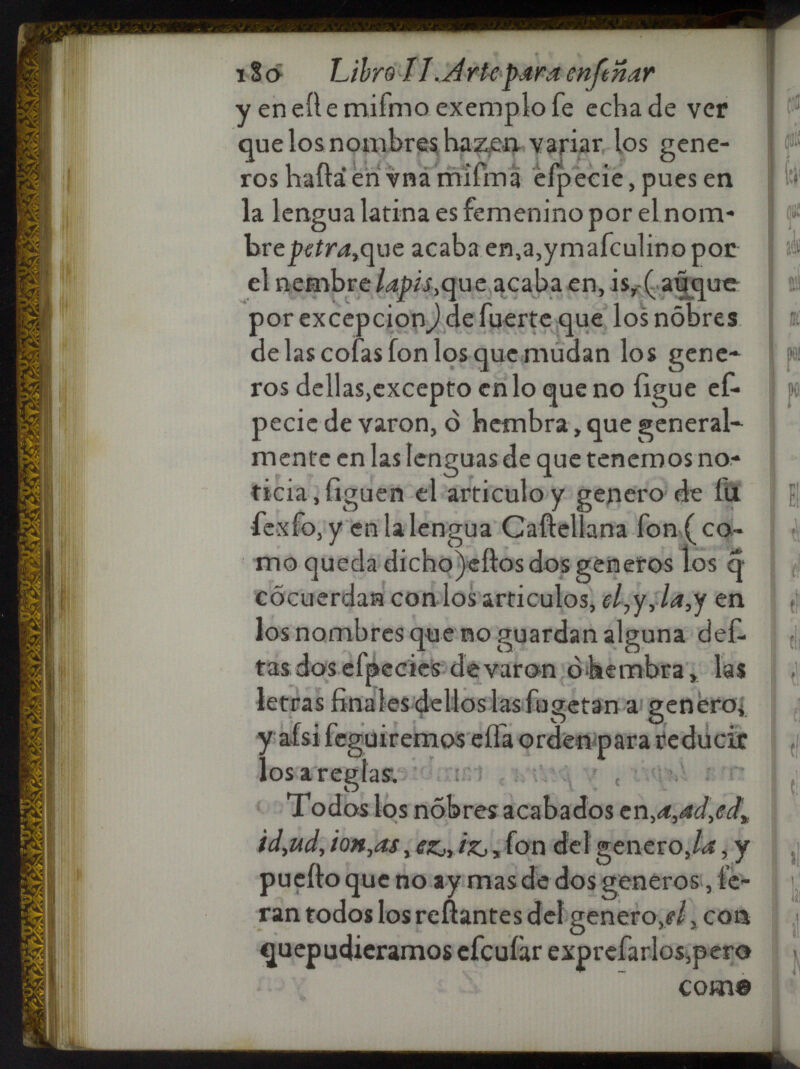 180 Libro II. Arte para enſeñar
y en eſte miſmo exemplo ſe echa de ver
que los nombres hazen variar los gene-
ros haſta en vna miſma eſpecie, pues en
la lengua latina es femenino por el nom-
bre petra, que acaba en, a, y maſculino por
el nembre lapis, que acaba en, is, (aũque
por excepcion) de ſuerte que los nõbres
de las coſas ſon los que mudan los gene-
ros dellas, excepto en lo que no ſigue eſ-
pecie de varon, ò hembra, que general-
mente en las lenguas de que tenemos no-
ticia, ſiguen el articulo y genero de ſu
ſexſo, y en la lengua Caſtellana ſon (co-
mo queda dicho) eſtos dos generos los q̃
cõcuerdan con los articulos, el, y, la, y en
los nombres que no guardan alguna deſ-
tas dos eſpecies de varon ò hembra, las
letras finales dellos las ſugetan a genero;
y aſsi ſeguiremos eſſa orden para reducir
los a reglas.
Todos los nõbres acabados en, a, ad, ed,
id, ud, ion, as, ez, iz, ſon del genero, la, y
pueſto que no ay mas de dos generos, ſe-
ran todos los reſtantes del genero, el, con
que pudieramos eſcuſar expreſarlos, pero
como